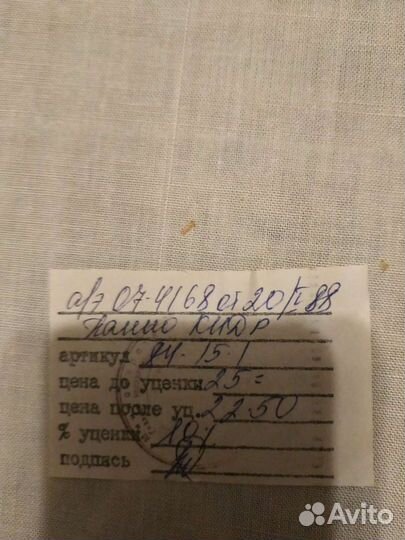 07-4168 от 20/I 88
Панно КНДР
артикул 84-15-1
цена до уценки 25=
цена после уц. 22-50
% уценки 10%
подпись
Avito